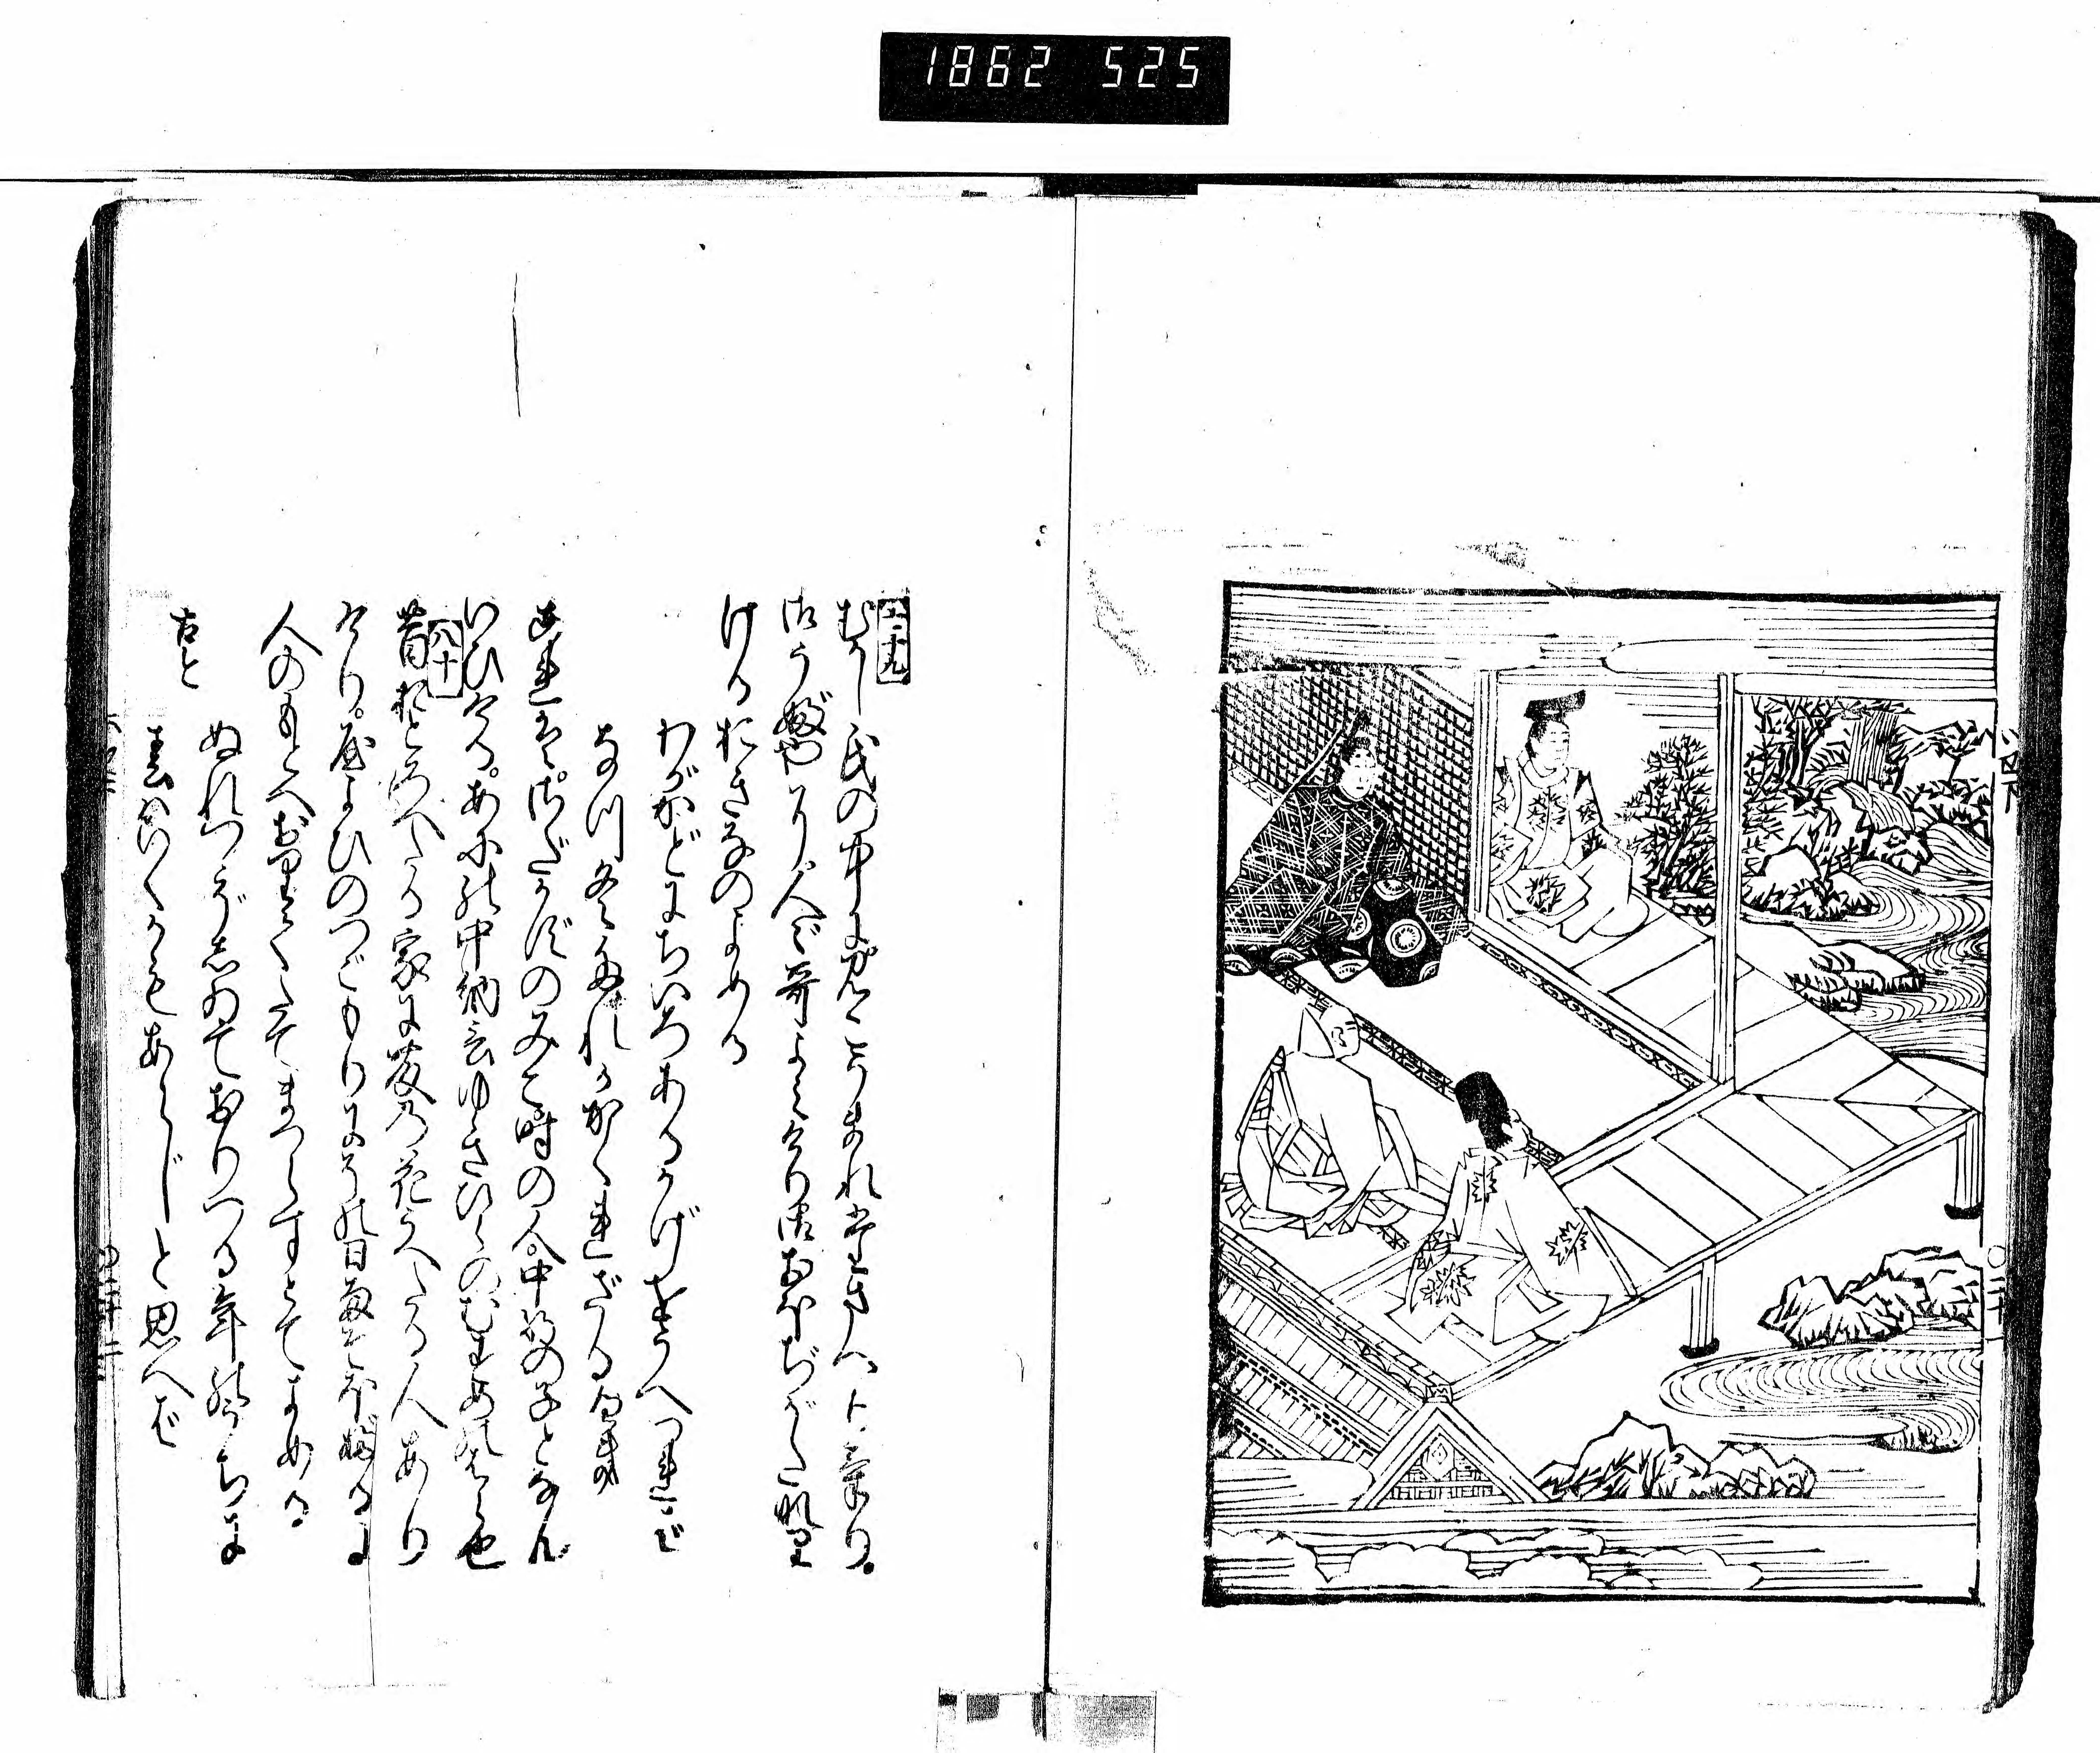 1862 525
七十九
むかし氏の中にみこうまれ給へりけり
御うぶやに人〴〵哥よみけり御おほぢがたなり
けるおきなのよめる
わがかどにちいろあるかげをうへつれば
なつ冬たれかかくれざるべき
これはさだかずのみこ時の人中将の子となん
いひけるあにの中納言ゆきひらのむすめのはら也
八十
昔おとろへたる家に藤の花うへたる人あり
けりやよひのつごもりにその日雨そほふるに
人のもとへおりてたてまつらすとてよめる
ぬれつゝぞしゐておりつる年の内に
春はいくかもあらじと思へば
古今